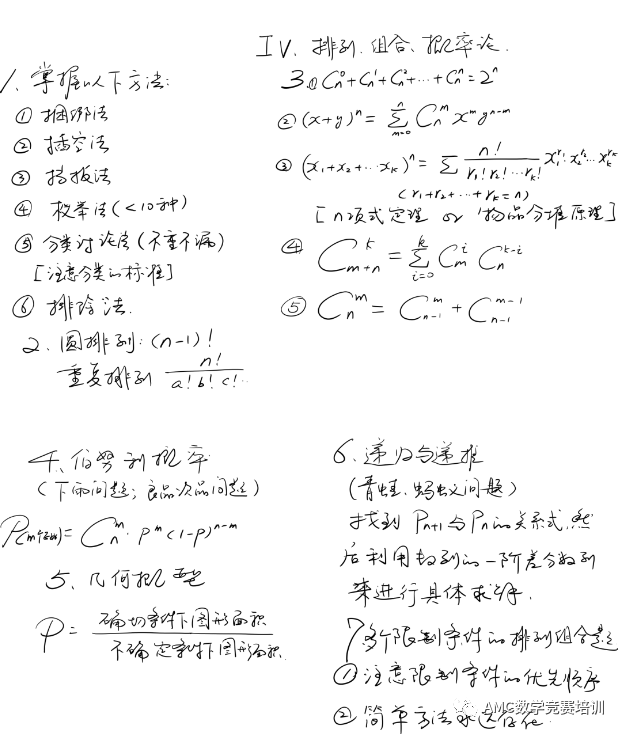 IV. 排列.组合、概率论.
1、掌握以下方法:
① 捆绑法
② 插空法
③ 挡板法
④ 枚举法(<10种)
⑤ 分类讨论法(不重不漏)
[注意分类的标准]
⑥ 排除法.
2. 圆排列:(n-1)!
重复排列 n!/(a!b!c!…)
3.① C_n^0+C_n^1+C_n^2+…+C_n^n=2^n
② (x+y)^n = ∑_{m=0}^{n} C_n^m x^m y^{n-m}
③ (x_1+x_2+…x_k)^n = ∑ n!/(r_1!r_2!…r_k!) x_1^{r_1} x_2^{r_2}…x_k^{r_k}
(r_1+r_2+…+r_k=n)
[n项式定理 or 物品分堆原理]
④ C_{m+n}^k = ∑_{i=0}^{k} C_m^i C_n^{k-i}
⑤ C_n^m = C_{n-1}^m + C_{n-1}^{m-1}
4、伯努利概率
(下雨问题;良品次品问题)
P(m个成功)= C_n^m · p^m (1-p)^{n-m}
5、几何概型
P = 确切条件下图形面积/不确定条件下图形面积
6、递归与递推
(青蛙、蚂蚁问题)
找到 P_{n+1}与P_n的关系式,然
后利用数列的一阶差分数列
来进行具体求解.
7多个限制条件的排列组合题
① 注意限制条件的优先顺序
② 简单方法永远存在
AMC数学竞赛培训